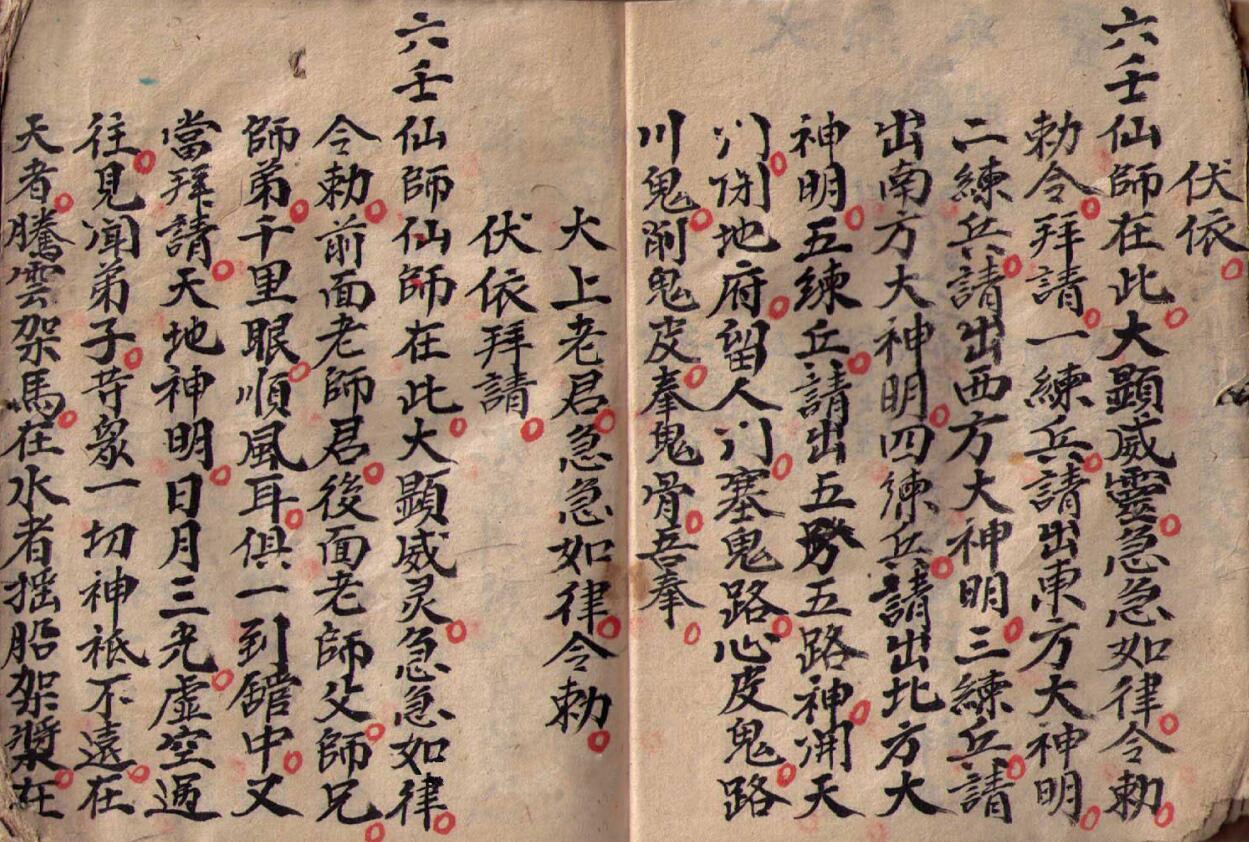 伏依
六壬仙師在此大顕威靈急急如律令勅
勅令拜請一練兵請出東方大神明
二練兵請出西方大神明三練兵請
出南方大神明四練兵請出北方大
神明五練兵請出五路神開天
门闭地府留人门塞鬼路心皮鬼路
川鬼削鬼皮奉鬼骨吾奉
大上老君急急如律令勅
伏依拜請
六壬仙師仙師在此大顕威灵急急如律
令勅前面老師君後面老師父師兄
師弟千里眼順風耳俱一到舘中又
當拜請天地神明日月三光虚空過
往見闻弟子苻衆一切神祗不遠在
天者騰雲架馬在水者摇船架槳在